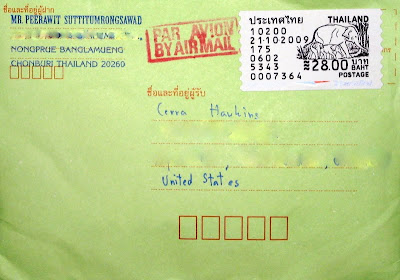 ชื่อและที่อยู่ผู้ฝาก
MR PEERAWIT SUTTITUMRONGSAWAD
NONGPRUE BANGLAMUENG
CHONBURI THAILAND 20260
PAR AVION
BY AIR MAIL
ประเทศไทย THAILAND
10200
21102009
175
0602
5343
0007364
28.00 บาท BAHT
POSTAGE
ชื่อและที่อยู่ผู้รับ
Cerra Hawkins
United States